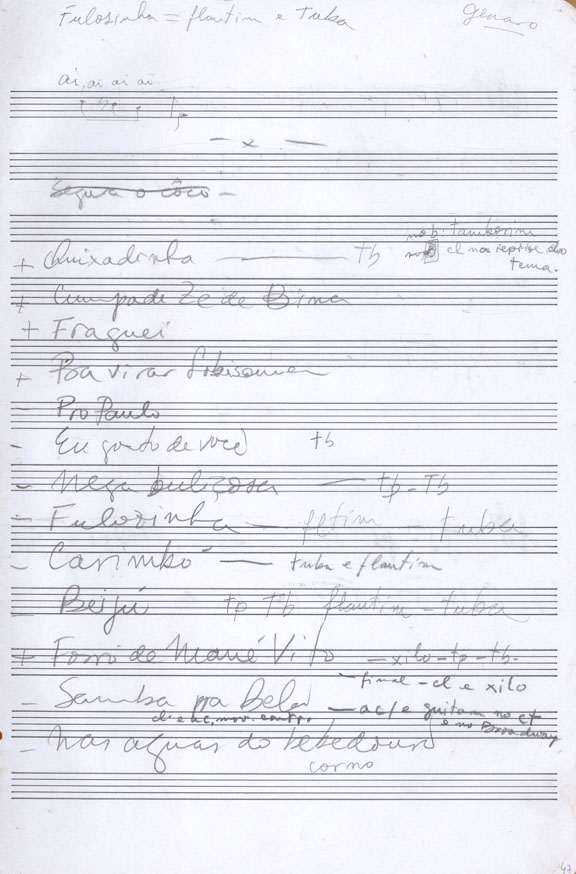 Fulosinha = flautim e Tuba
Genaro
ai, ai ai ai
— x —
Segura o côco —
+ Quixadinha — tb
no b: tamborim
cl na reprise do
tema.
+ Cumpade Zé de Bina
+ Fraguei
+ Pra virar Lobisomen
- Pro Paulo
- Eu gosto de você tb
- Nega buliçosa — tp - Tb
- Fulozinha — fltim - tuba
- Carimbó — tuba e flautim
- Beijú tp Tb flautim - tuba
+ Forró de Mané Vito — xilo - tp - tb -
final - cl e xilo
- Samba pra Bela — ac/e guitarr no ct
e no Broadway
- Nas aguas do bebedouro
corno
43